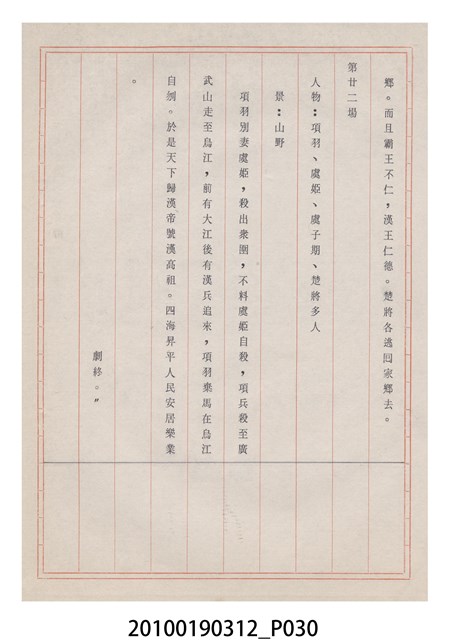 鄉。而且霸王不仁,漢王仁德。楚將各逃囘家鄉去。
第廿二場
人物:項羽、虞姬、虞子期、楚將多人
景:山野
項羽別妻虞姬,殺出衆圍,不料虞姬自殺,項兵殺至廣
武山走至烏江,前有大江後有漢兵追來,項羽棄馬在烏江
自刎。於是天下歸漢帝號漢高祖。四海昇平人民安居樂業
。
劇終。〃
20100190312_P030